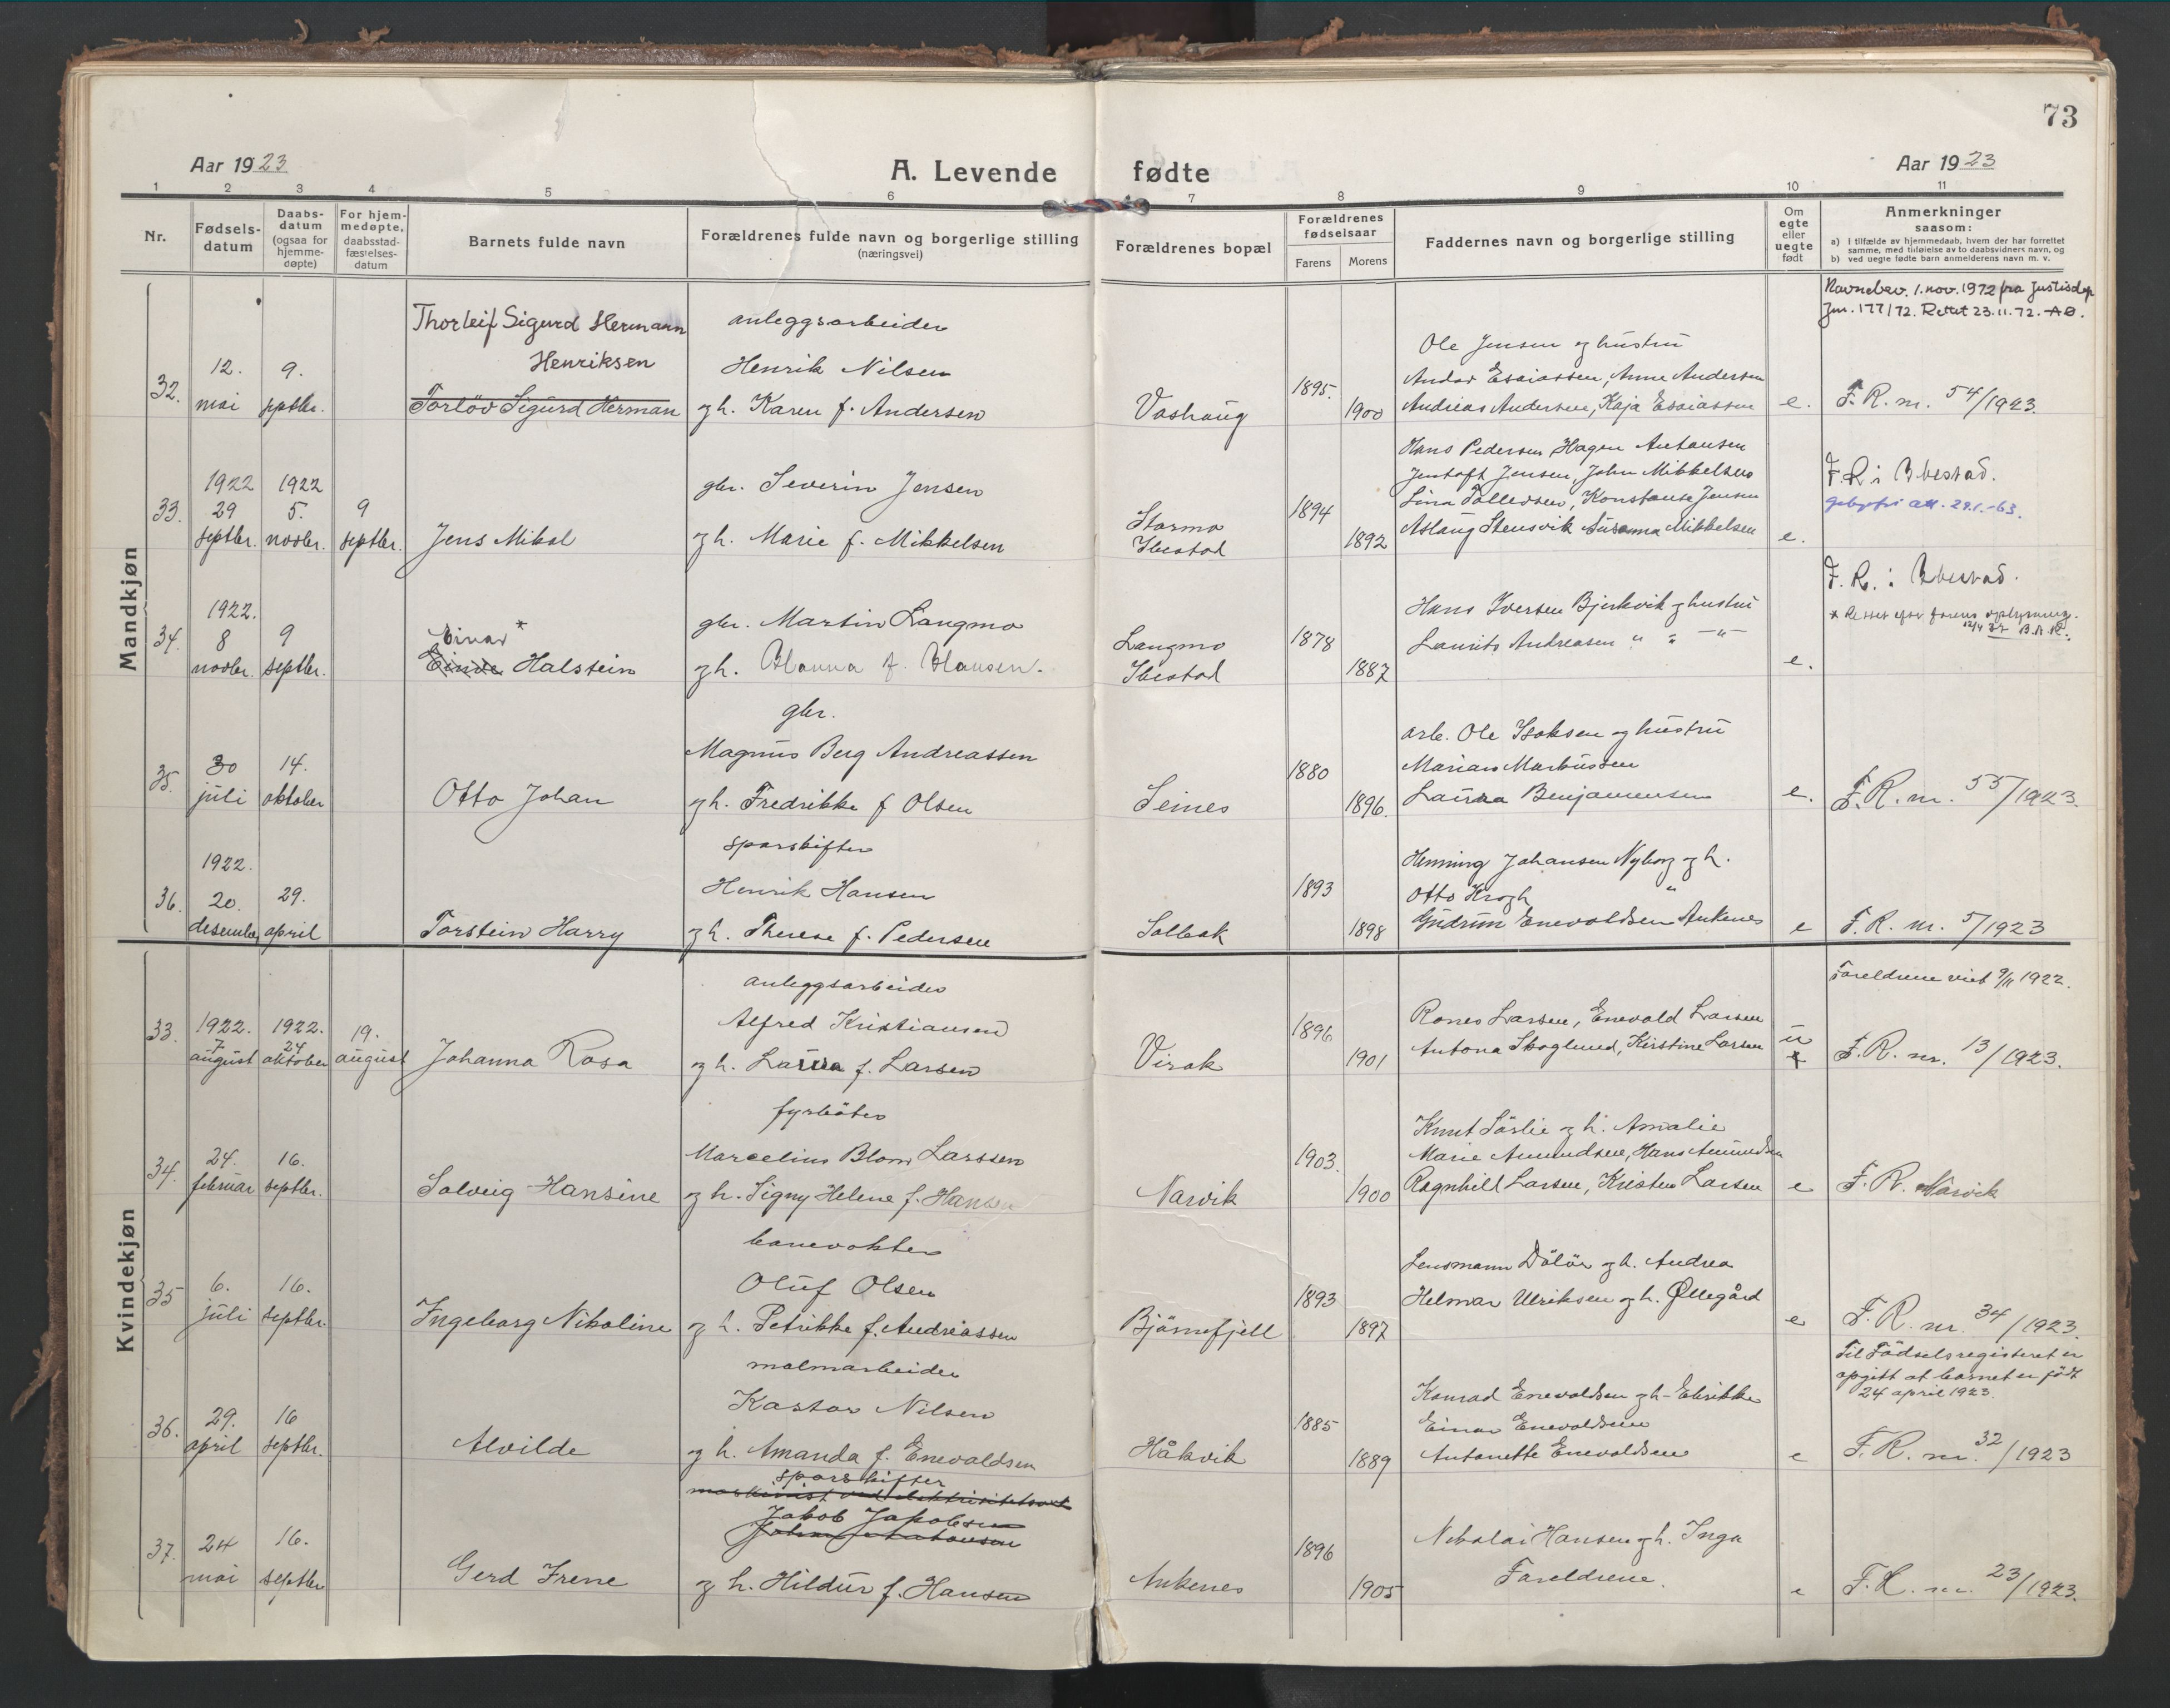 73
Aar 1923
A. Levende fødte
Aar 1923
1 2 3 4 5 6 7 8 9 10 11
Nr.
Fødsels-
datum
Daabs-
datum
(ogsaa for
hjemme-
døpte)
For hjem-
medøpte,
daabsstad-
fæstelses-
datum
Barnets fulde navn
Forældrenes fulde navn og borgerlige stilling
(næringsvei)
Forældrenes bopæl
Forældrenes
fødselsaar
Farens
Morens
Faddernes navn og borgerlige stilling
Om
egte
eller
uegte
født
Anmerkninger
saasom:
a) I tilfælde av hjemmedaab, hvem der har forrettet
samme, med tilføielse av to daabsvidners navn, og
b) ved uegte fødte barn anmelderens navn m. v.
Mandkjøn
32.
12.
mai
9.
septbr.
Thorleif Sigurd Hermann
Henriksen
Torlöv Sigurd Herman
anleggsarbeider
Henrik Nilsen
og h. Karen f. Andersen
Vashaug
1895.
1900
Ole Jensen og hustru
Andor Esaiassen, Anne Andersen
Andreas Andersen, Kaja Esaiassen
e.
Navnebev. 1. nov. 1972 fra Justisdep
Jnr. 177/72. Rettet 23.11.72. AØ.
F. R. nr. 54/1923.
33.
1922
29
septbr.
1922
5.
novbr.
9
septbr.
Jens Mikal
gbr. Severin Jensen
og h. Marie f. Mikkelsen
Stormo
Ibestad
1894
1892
Hans Pedersen Hagen Antonsen
Jentoft Jensen, John Mikkelsen
Lina Tollefsen, Konstanse Jensen
Aslaug Stensvik Susanna Mikkelsen
e.
F. R. i Ibestad.
gebyrfri att. 29.1.-63.
34.
1922.
8
novbr.
9
septbr.
Einar *
Einde Halstein
gbr. Martin Langmo
og h. Hanna f. Hansen.
Langmo
Ibestad
1878
1887
Hans Iversen Bjerkvik og hustru
Laurits Andreasen " " — " —
e.
F. R. i Ibestad.
* Rettet efter farens oplysning.
12/4 37 B.A.R.
35.
30
juli
14.
oktober
Otto Johan
gbr.
Magnus Berg Andreassen
og h. Fredrikke f Olsen
Seines
1880
1896.
arb. Ole Isaksen og hustru
Marian Markussen
Laura Benjaminsen
e.
F. R. nr. 55/1923.
36.
1922.
20.
desember
29.
april
Torstein Harry
sporskifter
Henrik Hansen
og h. Therese f. Pedersen
Solbak
1893
1898
Henning Johansen Nyborg og h.
Otto Krogh "
Gudrun Enevoldsen Ankenes
e
F. R. nr. 5/1923
Kvindekjøn
33.
1922.
7
august
1922.
24
oktober
19.
august
Johanna Rosa
anleggsarbeider
Alfred Kristiansen
og h. Laura f. Larsen
Virak
1896
1901
Rones Larsen, Enevold Larsen
Antona Skoglund, Kirstine Larsen
u
Foreldrene viet 9/11 1922.
F. R. nr. 13/1923.
34.
24.
februar
16.
septbr.
Solveig Hansine
fyrböter
Marcelius Blom Larssen
og h. Signy Helene f. Hansen
Narvik
1903.
1900
Knut Sörlie og h. Amalie
Marie Amundsen, Hans Amundsen
Ragnhild Larsen, Kristen Larsen
e
F. R. Narvik
35
6.
juli
16.
septbr.
Ingeborg Nikoline
banevokter
Oluf Olsen
og h. Petrikke f. Andreassen
Björnefjell
1893
1897
Lensmann Dölör og h. Andrea
Helmar Ulriksen og h. Øllegård
e
F. R. nr. 34/1923.
36.
29.
april
16
septbr.
Alvilde
malmarbeider
Kastor Nilsen
og h. Amanda f. Enevoldsen
Håkvik
1885
1889
Konrad Enevoldsen og h. Elrikke
Einar Enevoldsen
Antonette Enevoldsen
e
Til Födselsregisteret er
opgitt at barnet er födt
24 april 1923.
F. R. nr. 32/1923
37.
24
mai
16.
septbr
Gerd Irene
sporskifter
maskinist ved elektrisitetsverk
Jakob Jakobsen
og h. Hildur f. Hansen
Ankenes
1896
1905
Nikolai Hansen og h. Inga
Foreldrene.
e
F. R. nr. 23/1923.